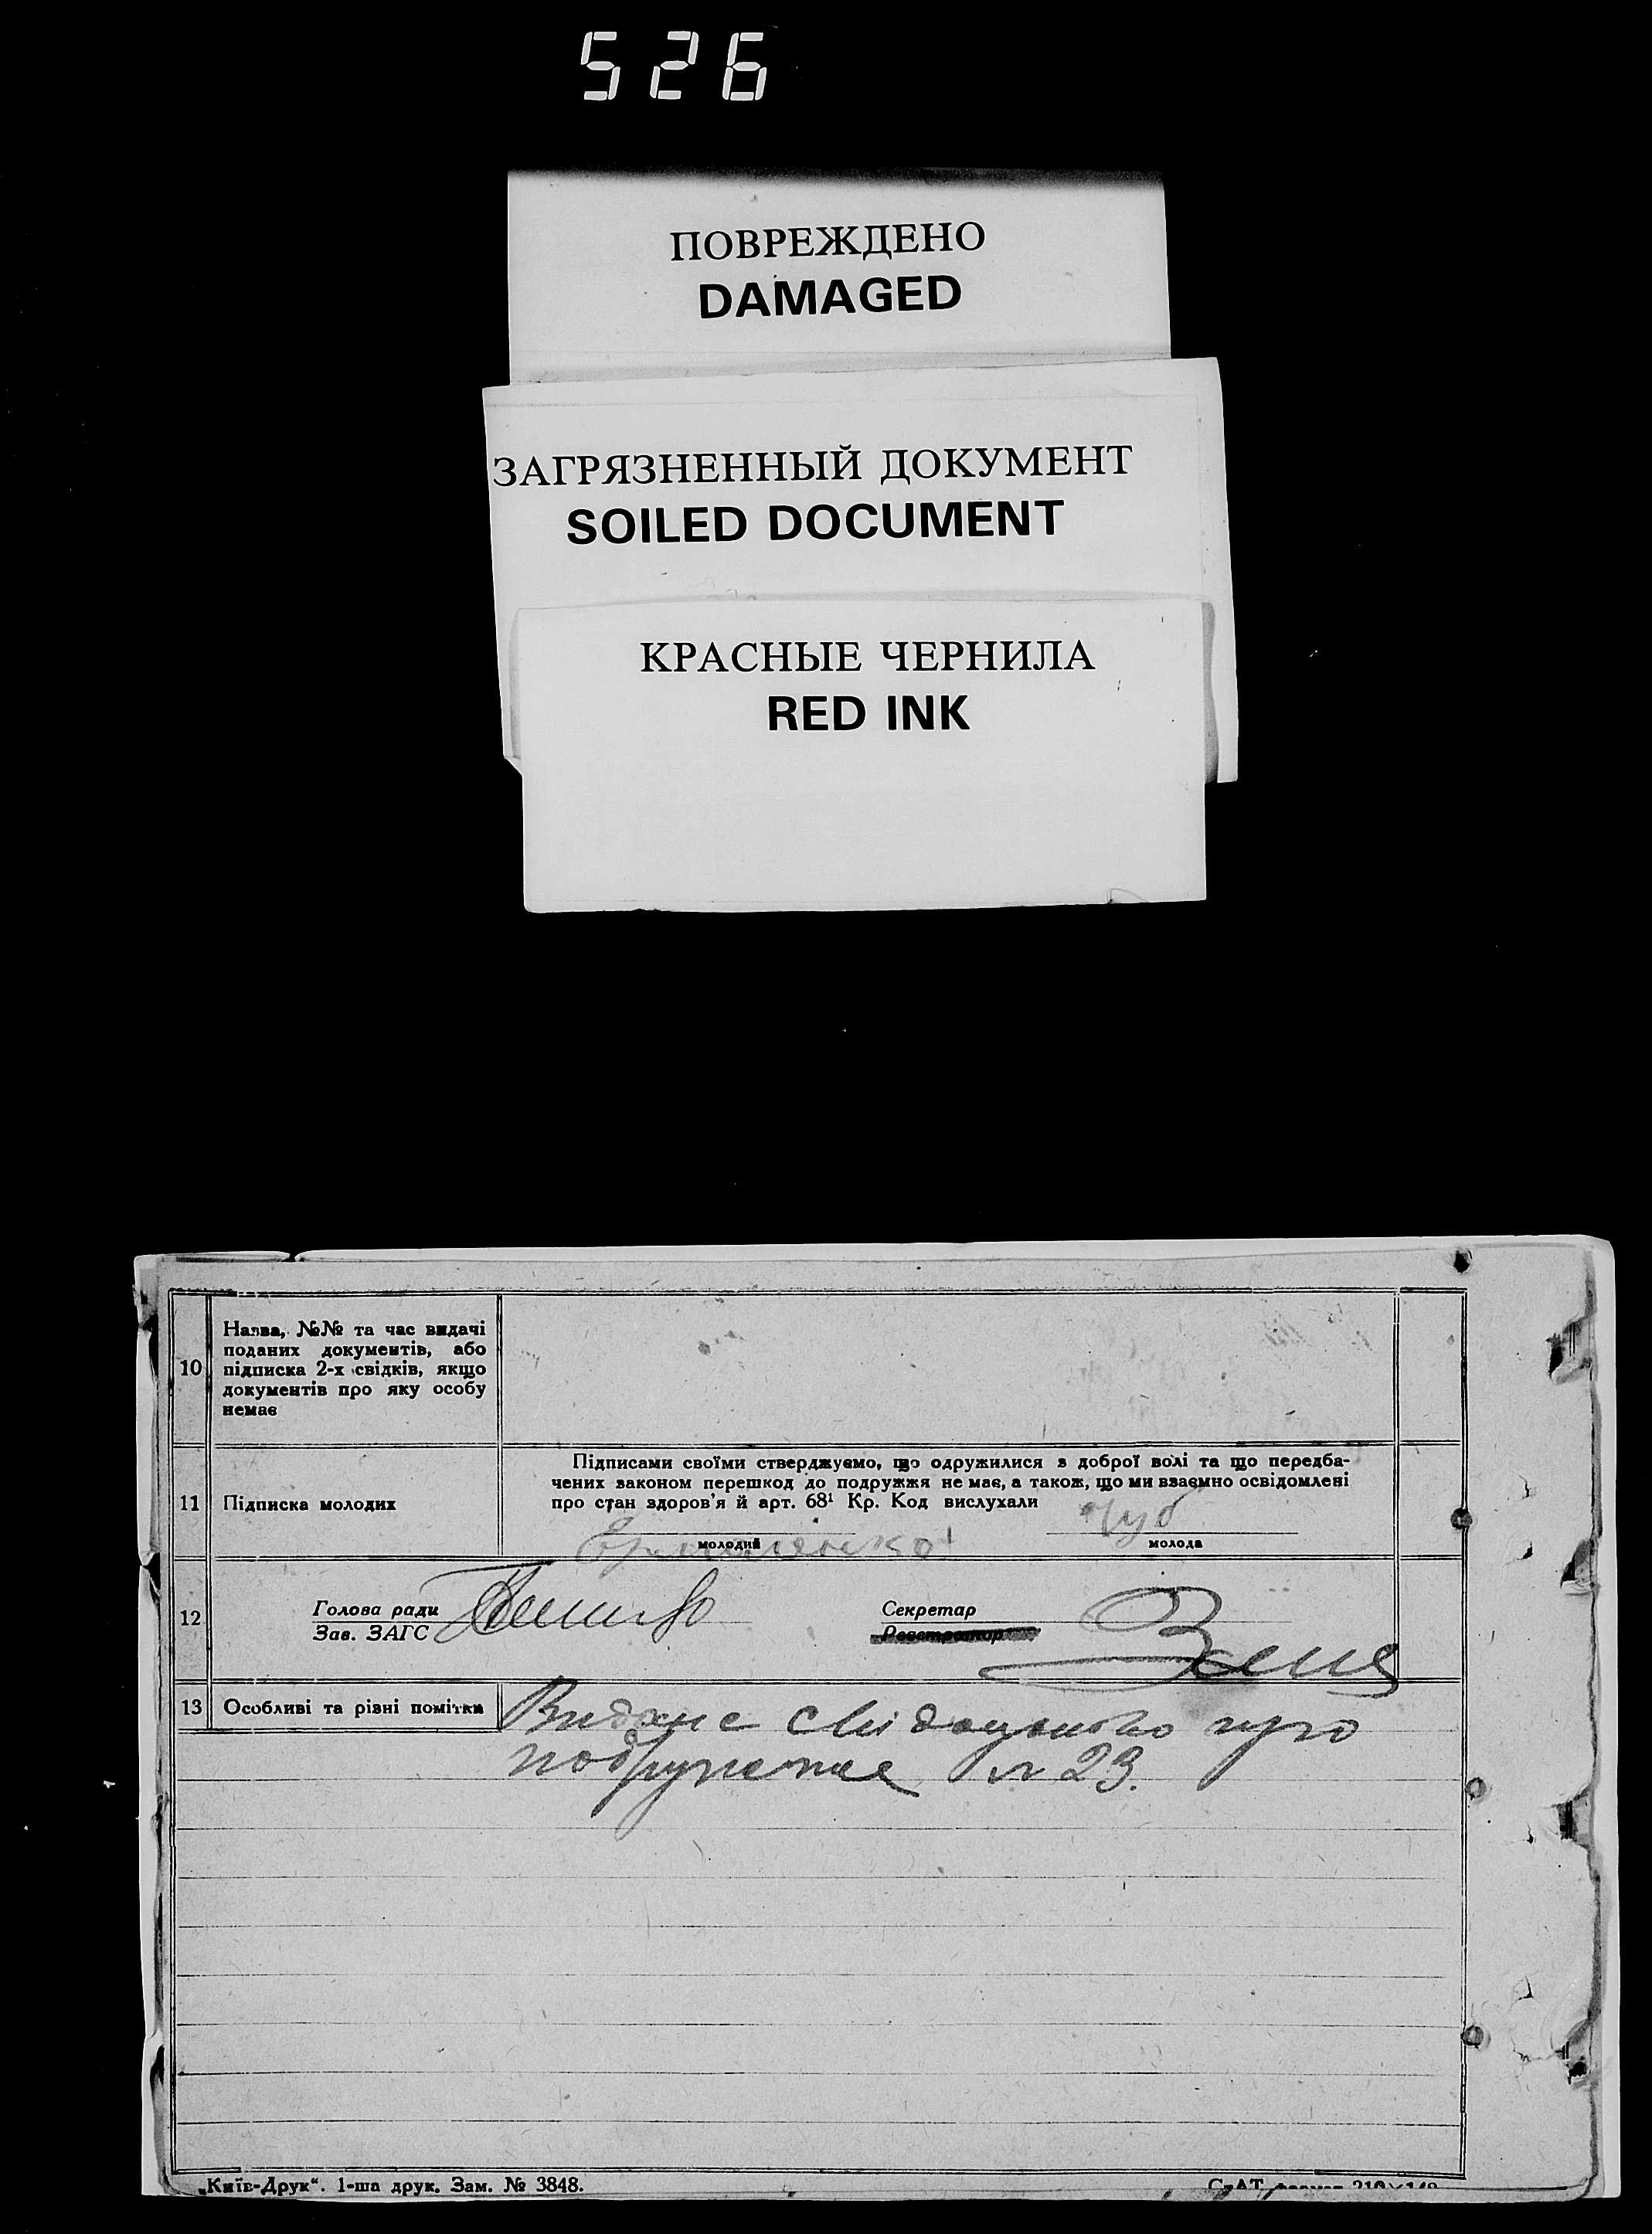 526
ПОВРЕЖДЕНО
DAMAGED
ЗАГРЯЗНЕННЫЙ ДОКУМЕНТ
SOILED DOCUMENT
КРАСНЫЕ ЧЕРНИЛА
RED INK
10
Назва, №№ та час видачі
поданих документів, або
підписка 2-х свідків, якщо
документів про яку особу
немає
11
Підписка молодих
Підписами своїми стверджуємо, що одружилися з доброї волі та що передба-
чених законом перешкод до подружжя не має, а також, що ми взаємно освідомлені
про стан здоров'я й арт. 68¹ Кр. Код вислухали
Чуб
молодий
молода
12
Голова ради
Зав. ЗАГС
Секретар
Реєстратор
13
Особливі та різні помітки
Видане свідоцтво про
№ 23.
„Київ-Друк“. 1-ша друк. Зам. № 3848.
формат 210×148